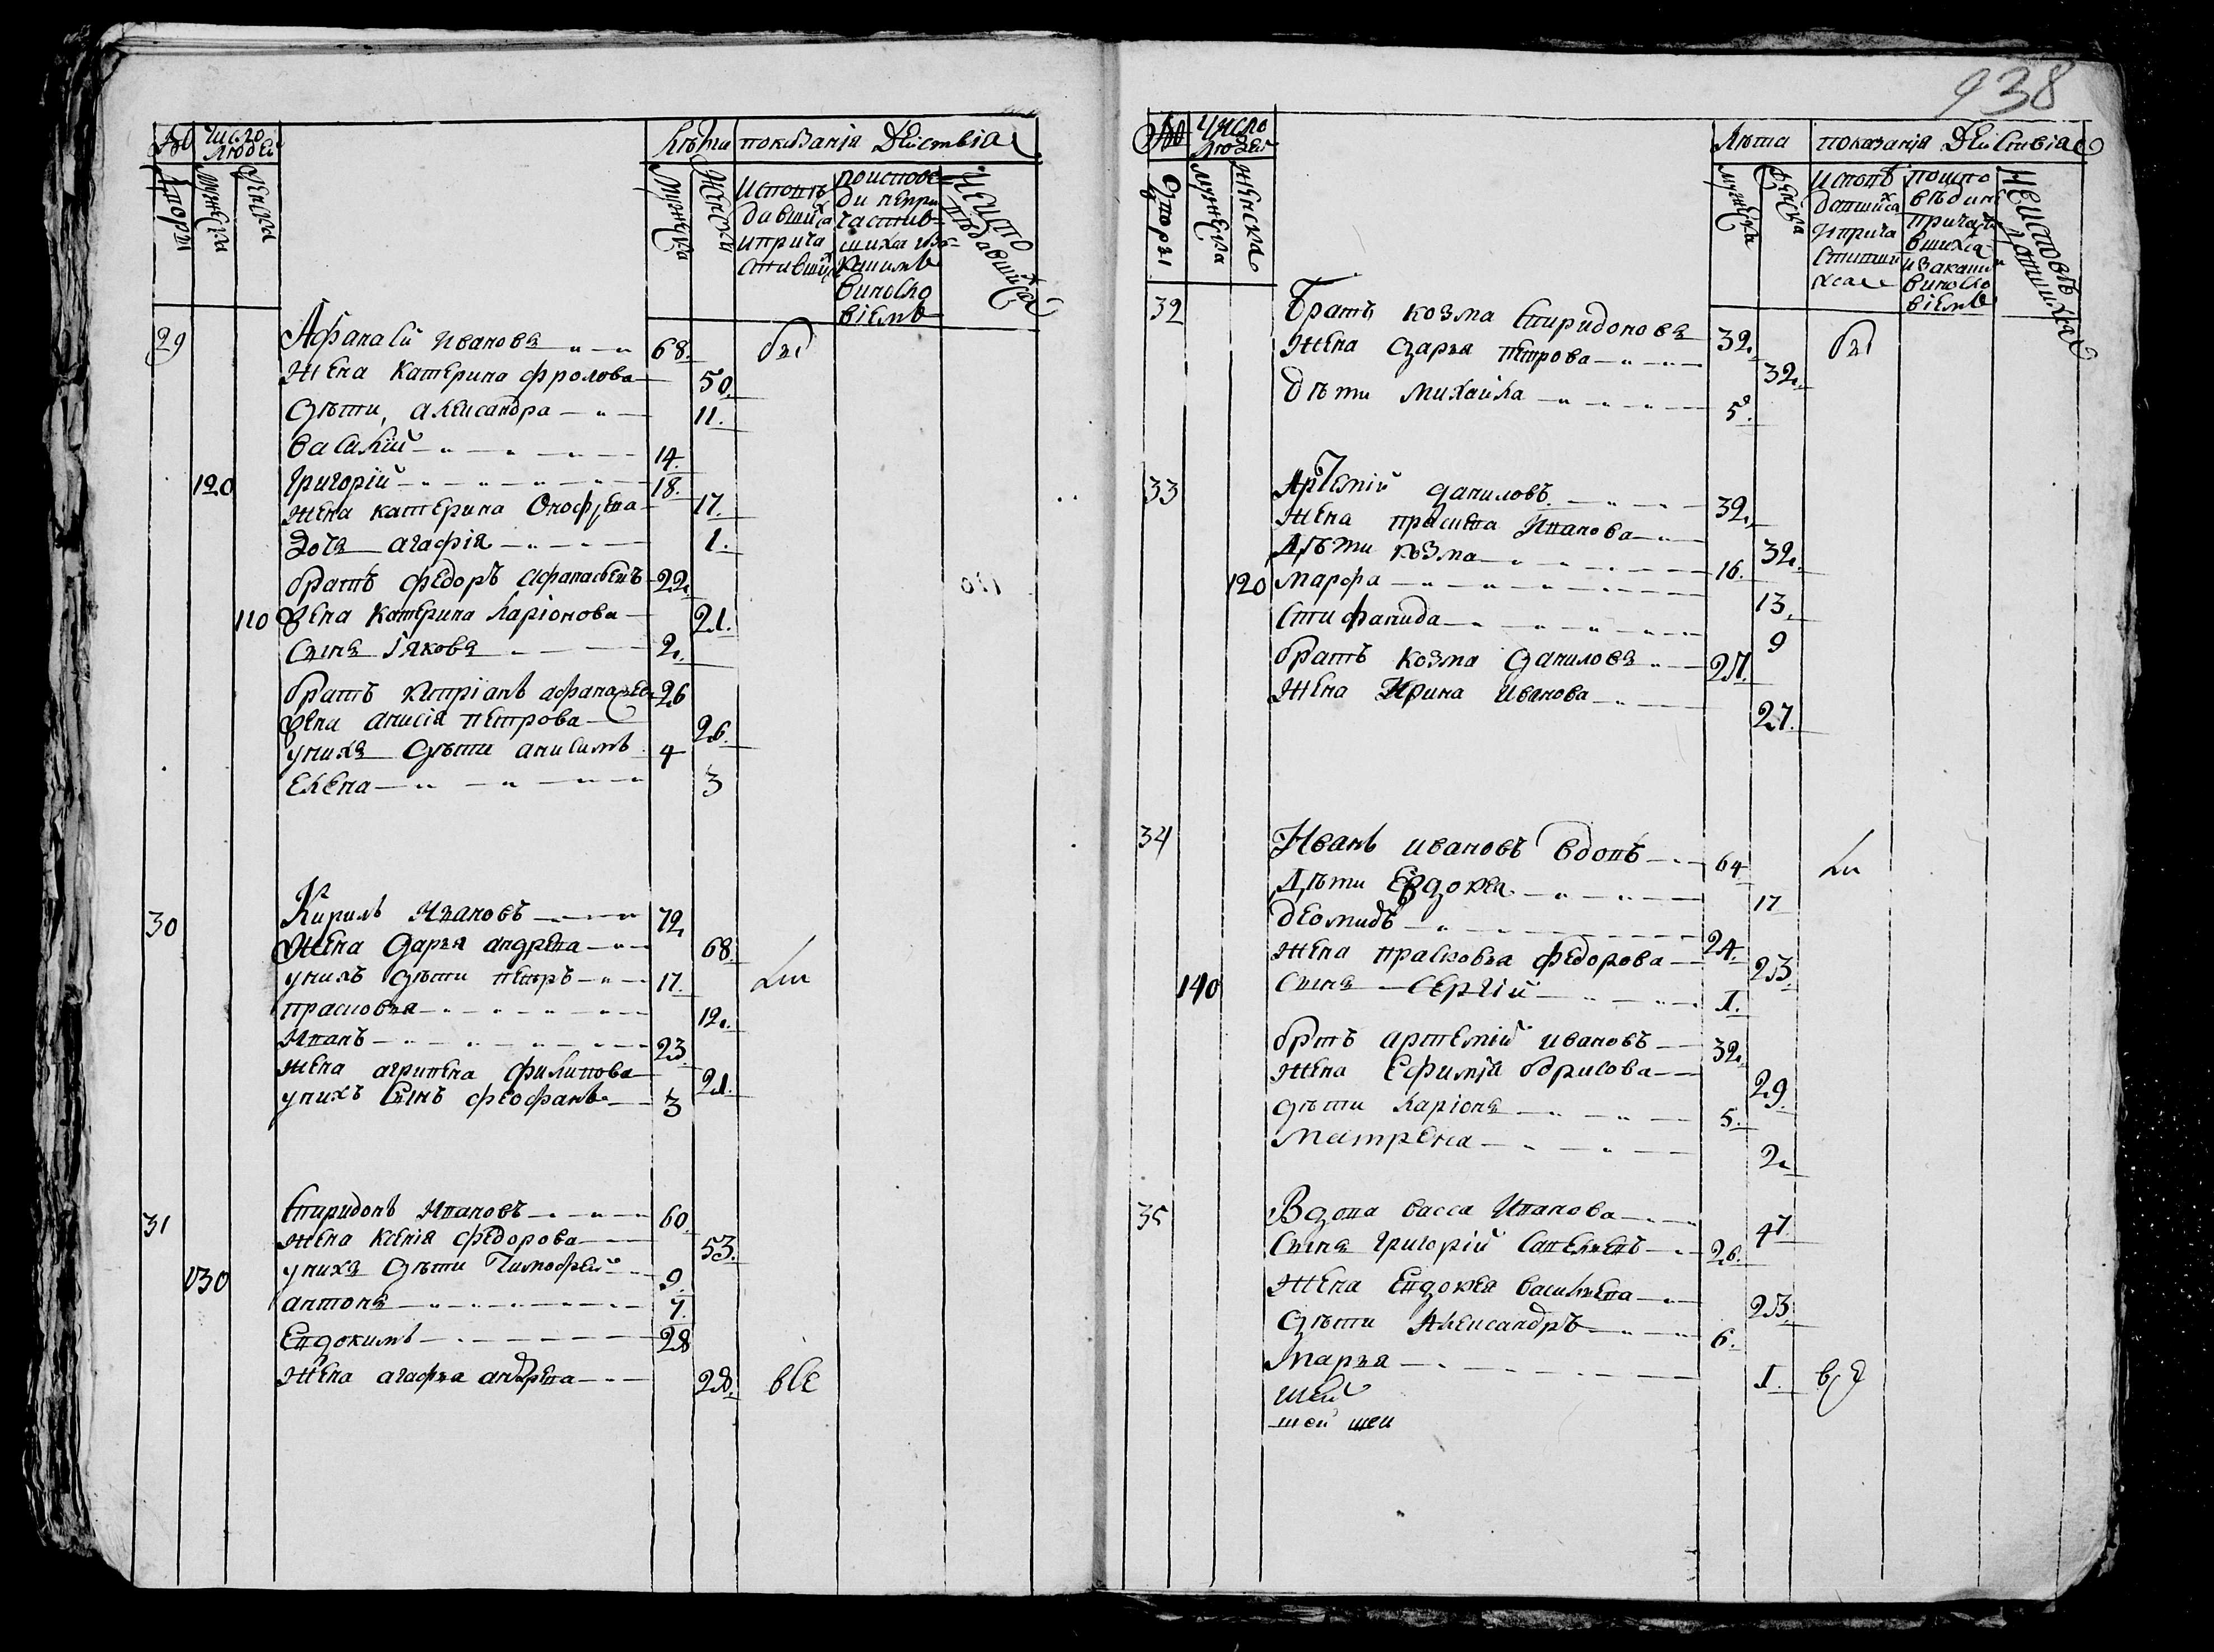 число людей
лѣта показанія дѣиствіа
дворы
мужеска
женска
мужеска
женска
исповѣ
давшихса
и прича
стившихса
по испове
ди непри
частив
шихса и за
какимъ
винословіемъ
неиспо
ведавшихса
29 Афанасй Ивановъ 68. бы
жена Катерина Фролова 50.
дѣти, алеѯандра 11.
васалїй 14.
120 Григорїй 18.
жена катерина Онофрева 17.
дочь агафія 1.
братъ федоръ афанасьевъ 22.
110 жена Катерина Ларіонова 21.
сынъ Іяковъ 2.
братъ кипріанъ афанасьевъ 26
жена анисія петрова 26.
у нихъ дѣти анисимъ 4
Елена 3
30 Кирилъ Ивановъ 72.
жена дарья андрева 68.
у нихъ дѣти петръ 17. ли
прасковья 12.
Иванъ 23.
жена агрипена филипова 21.
у нихъ сынъ феофанъ 3
31 Спиридонъ Ивановъ 60.
жена Ксенія федорова 53.
130 у нихъ дѣти Тимофей 9.
антонъ 7.
Евдокимъ 28
жена агафья андрева 28. все
938
число людей
лѣта показанія дѣиствіа
дворы
мужеска
женска
мужеска
женска
исповѣ
давшихса
и прича
стивши
хса
по испо
вѣди не
причасти
вшихса
и за каким
винсло
віемъ
неисповѣ
давшихса
32 Братъ козма спиридоновъ 32. бы
жена дарья петрова 32.
дѣти михайла 5.
33 Артемій даниловъ 32.
жена прасковя Иванова 32.
дѣти козма 16.
120 марфа 13.
стифанида 9
братъ козма даниловъ 27.
жена Ирина иванова 27.
34 Иванъ ивановъ вдовъ 64 ли
дѣти Евдокея 17
деомидъ 24.
жена прасковья федорова 23.
140 сынъ Сергій 1.
братъ артемій ивановъ 32.
жена Ефимія борисова 29.
дѣти ларіонъ 5.
Матрена 2.
35 Вдова васса Иванова 47.
сынъ григорій савельевъ 26.
жена Евдокея васильева 23.
дѣти Алеѯандръ 6.
марья 1. все
шей
шей шеи